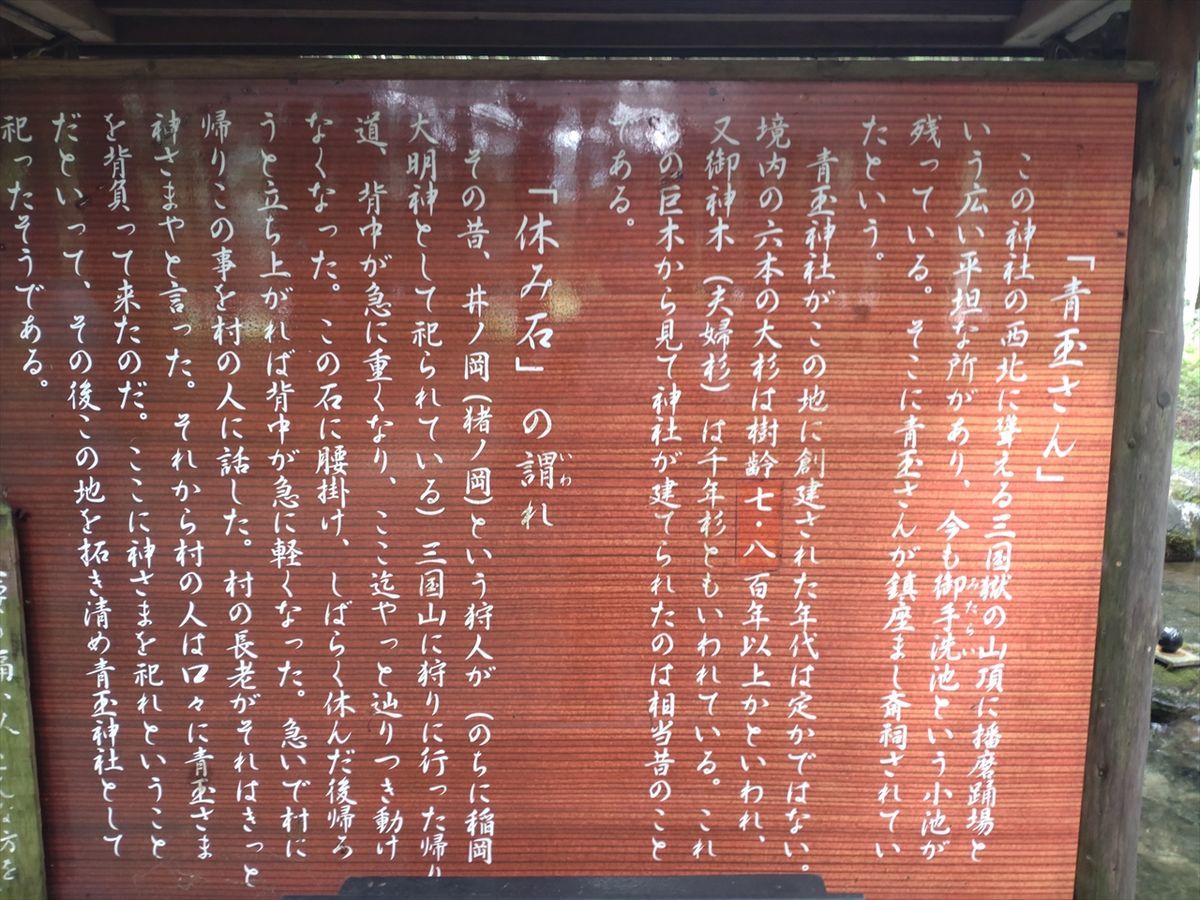 「青玉さん」
この神社の西北に聳える三国嶽の山頂に播磨踊場と
いう広い平担な所があり、今も御手洗池という小池が
みたらい
残っている。そこに青玉さんが鎮座まし斎祠されてい
たという。
青玉神社がこの地に創建された年代は定かではない。
境内の六本の大杉は樹齢七・八百年以上かといわれ、
又御神木(夫婦杉)は千年杉ともいわれている。これ
らの巨木から見て神社が建てられたのは相当昔のこと
である。
「休み石」の謂れ
いわ
その昔、井ノ岡(猪ノ岡)という狩人が(のちに稲岡
大明神として祀られている)三国山に狩りに行った帰り
道、背中が急に重くなり、ここ迄やっと辿りつき動け
なくなった。この石に腰掛け、しばらく休んだ後帰ろ
うと立ち上がれば背中が急に軽くなった。急いで村に
帰りこの事を村の人に話した。村の長老がそれはきっと
神さまやと言った。それから村の人は口々に青玉さま
を背負って来たのだ。ここに神さまを祀れということ
だといって、その後この地を拓き清め青玉神社として
祀ったそうである。